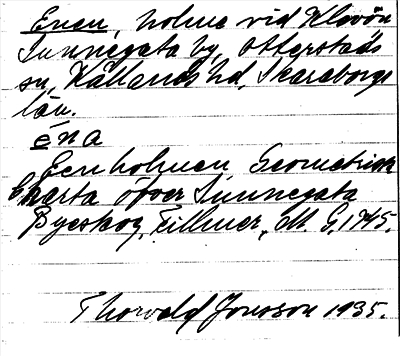 Enen, holme vid Klovön
Sunnegata by, Otterstads
sn, Kållands hd, Skaraborgs
län.
éna
Eenholmen, Geometrisk
Charta öfver Sunnegata
Byeskog, Fillmer, M. G. 1745.
Thorvald Jonsson 1935.